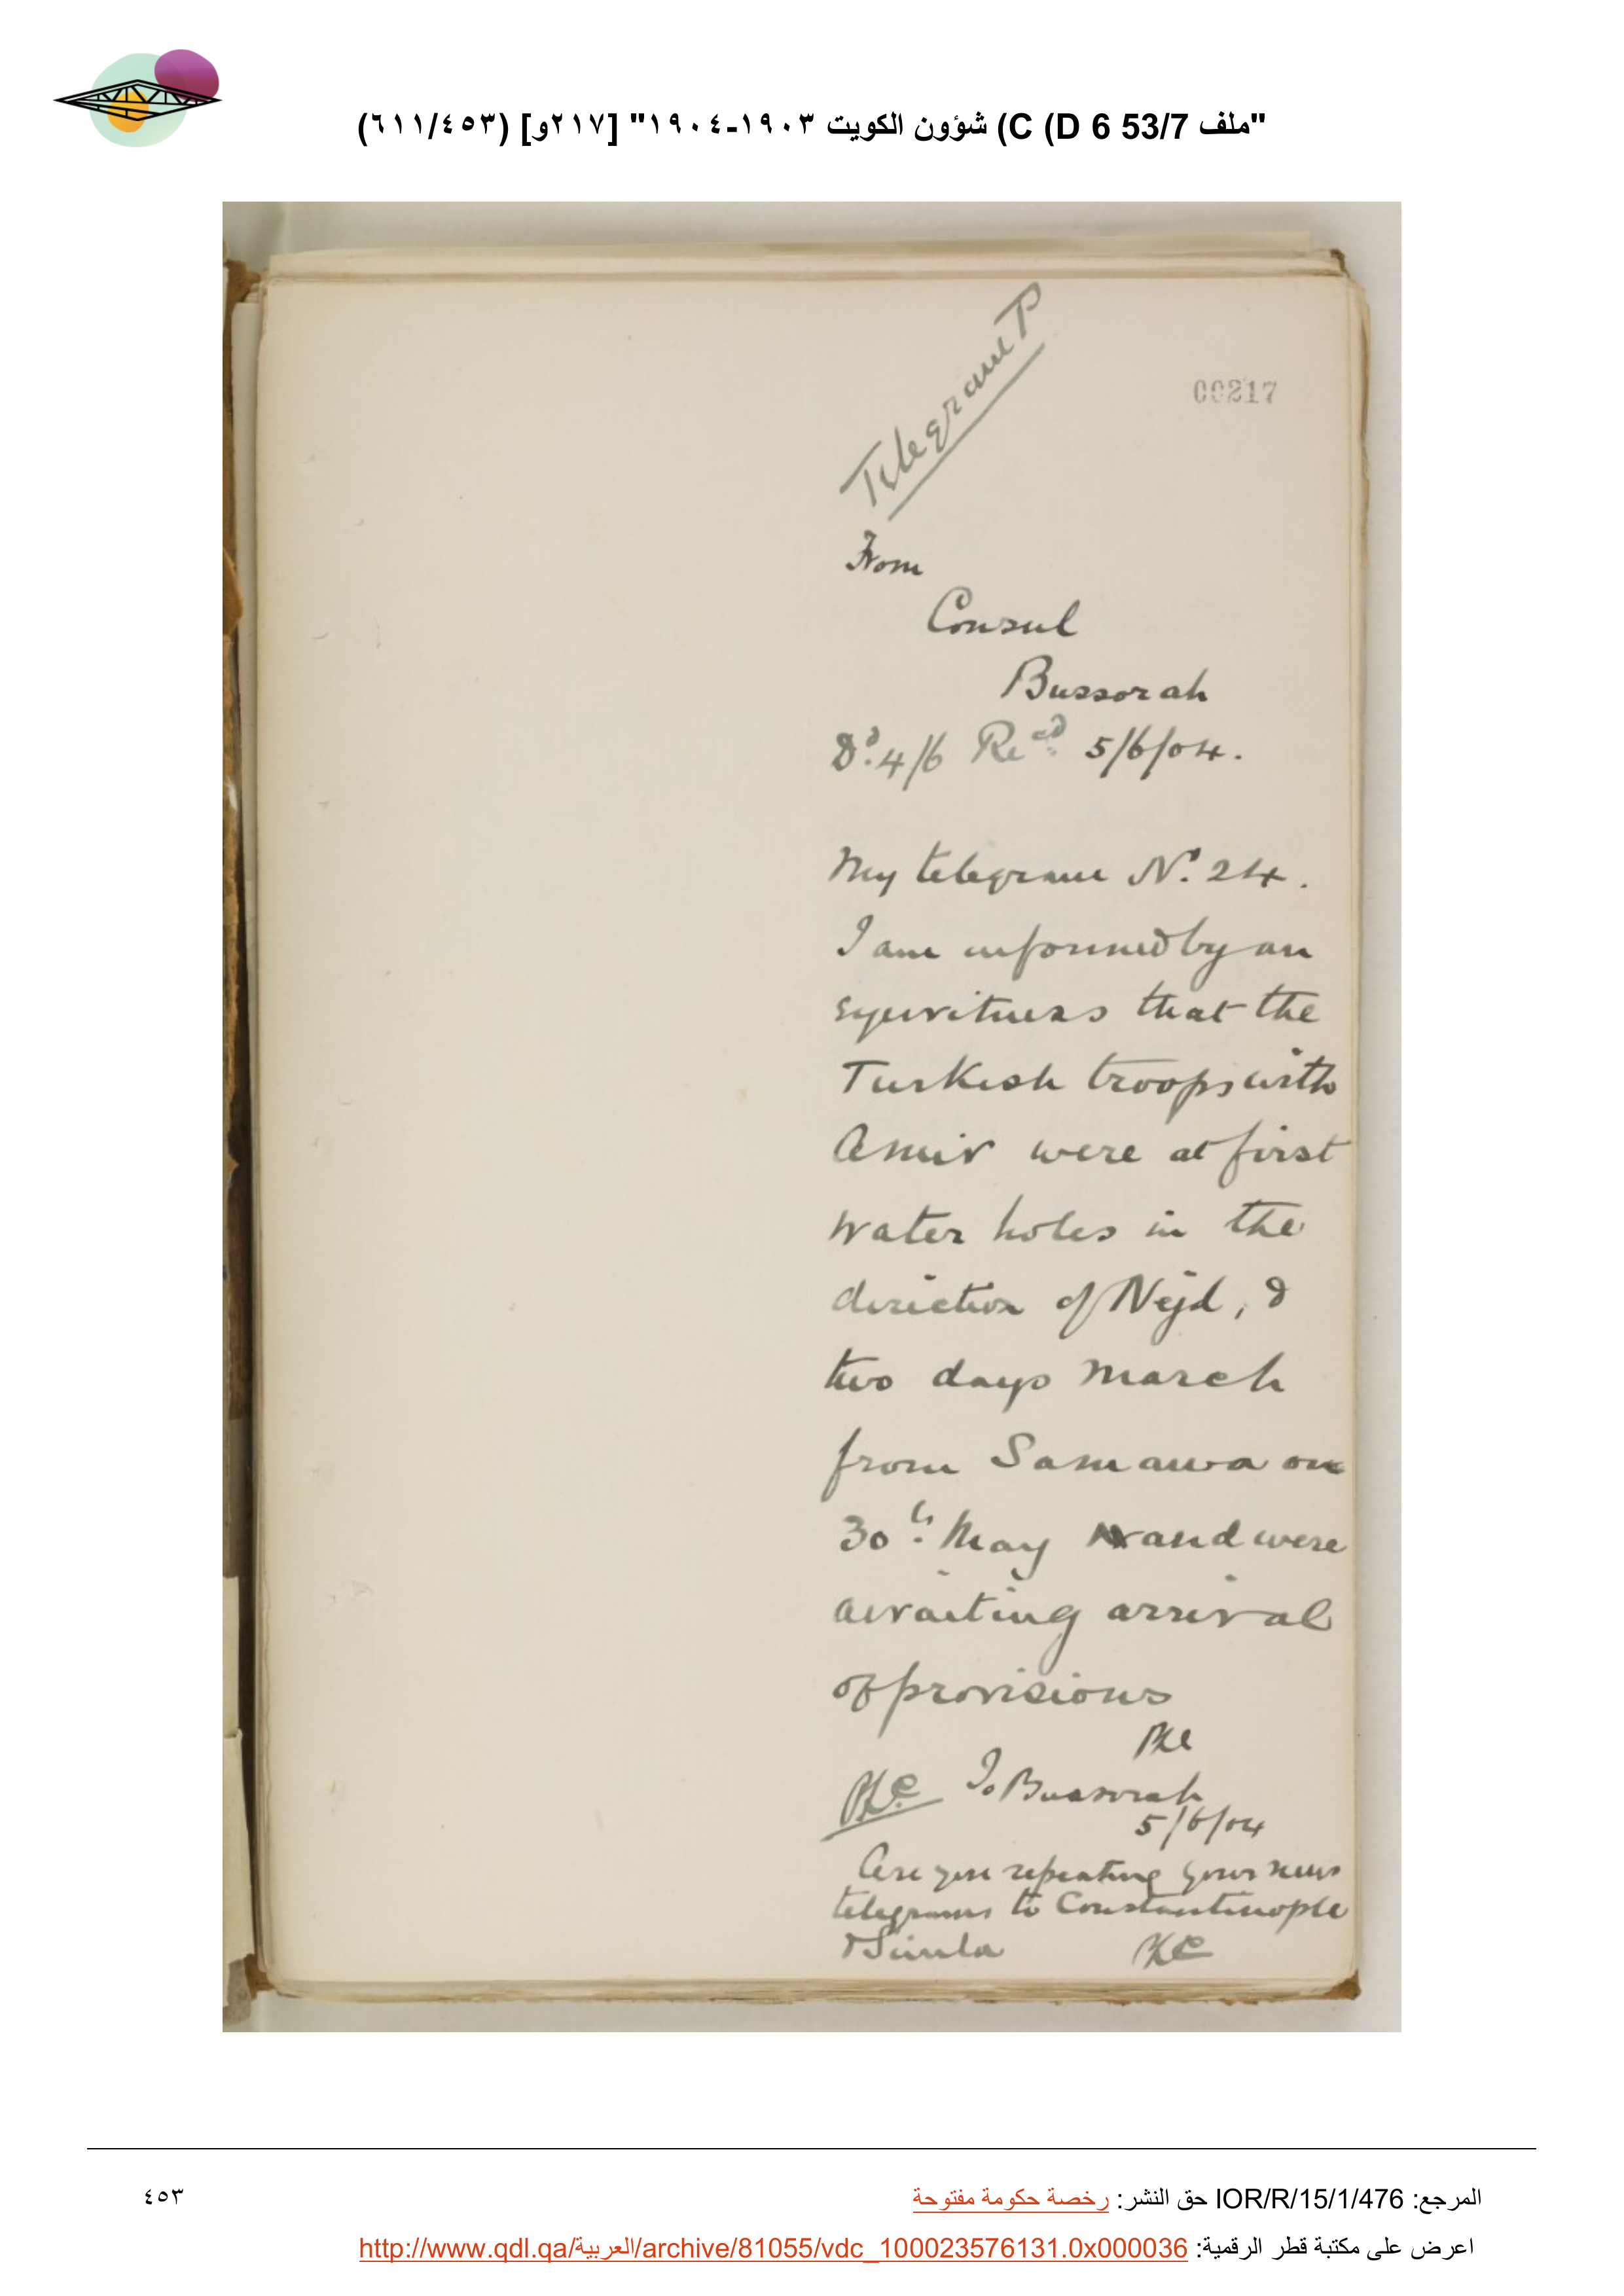 "ملف 53/7 D 6) C) شؤون الكويت ١٩٠٣-١٩٠٤" [٢١٧و] (٤٥٣/٦١١)
Telegram P
00217
From
Consul
Bussorah
Dd. 4/6 Recd. 5/6/04.
My telegram No. 24.
I am informed by an
eyewitness that the
Turkish troops with
Amir were at first
water holes in the
direction of Nejd, &
two days march
from Samawa on
30th. May and were
awaiting arrival
of provisions
To Bussorah
5/6/04
Are you repeating your news
telegrams to Constantinople
& Simla
المرجع: IOR/R/15/1/476 حق النشر: رخصة حكومة مفتوحة
٤٥٣
اعرض على مكتبة قطر الرقمية: http://www.qdl.qa/العربية/archive/81055/vdc_100023576131.0x000036